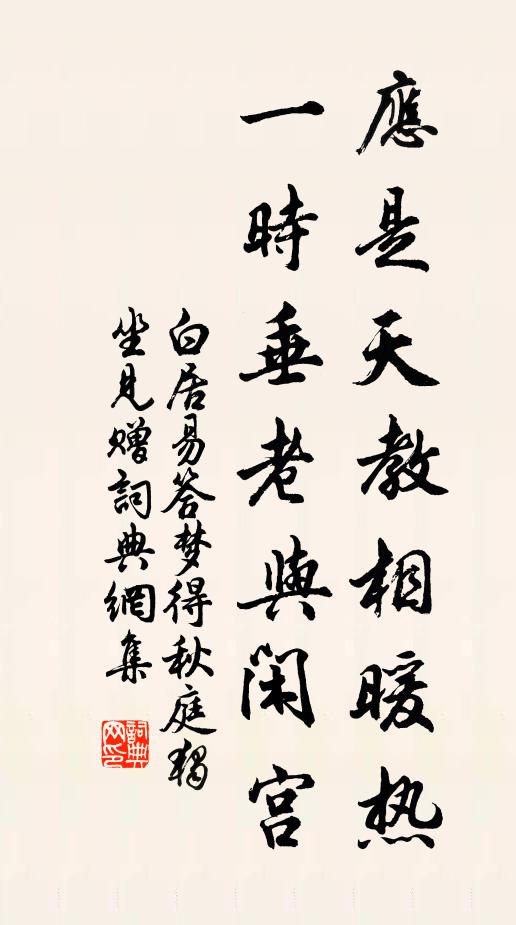 應是天教相暖热
一時垂老與闲宫
白居易答梦得秋庭獨
坐見赠詞典網集
詞典网印